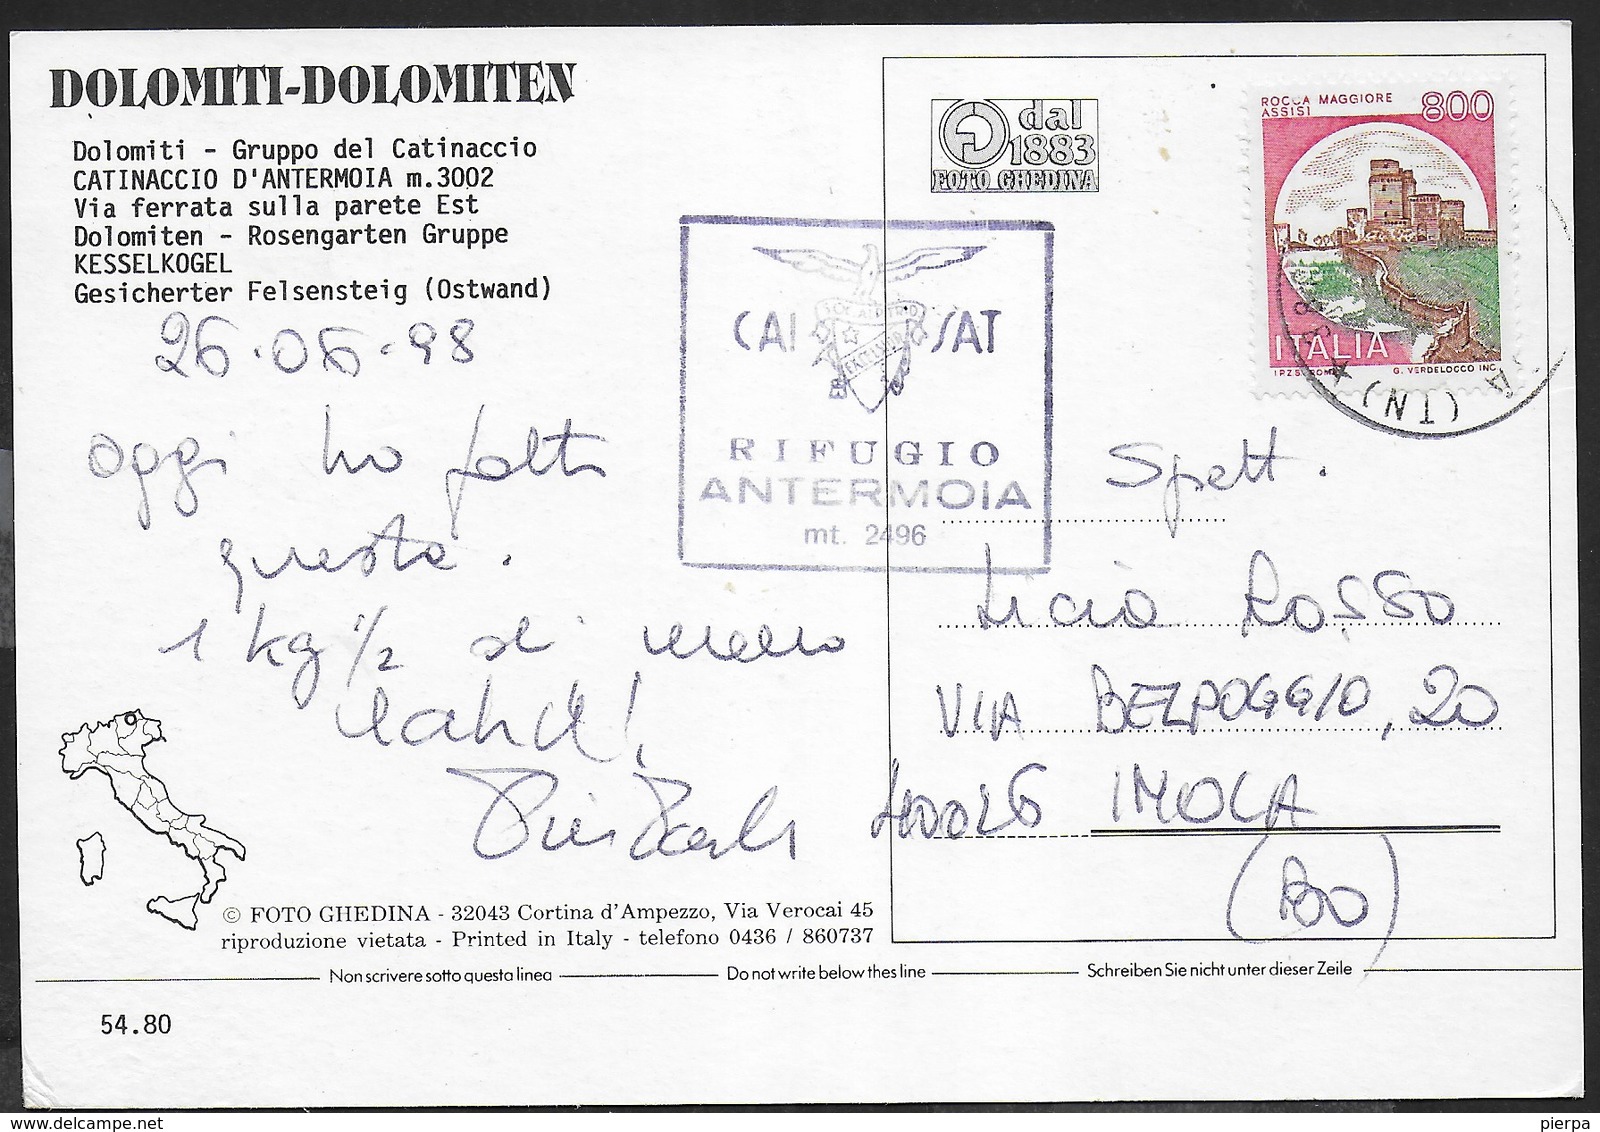 DOLOMITI-DOLOMITEN
Dolomiti - Gruppo del Catinaccio
CATINACCIO D'ANTERMOIA m.3002
Via ferrata sulla parete Est
Dolomiten - Rosengarten Gruppe
KESSELKOGEL
Gesicherter Felsensteig (Ostwand)
26.06.98
oggi ho fatto
questa.
1 kg ½ di meno
© FOTO GHEDINA - 32043 Cortina d'Ampezzo, Via Verocai 45
riproduzione vietata - Printed in Italy - telefono 0436 / 860737
dal
1883
FOTO GHEDINA
CAI SAT
RIFUGIO
ANTERMOIA
mt. 2496
ROCCA MAGGIORE
ASSISI
800
ITALIA
I.P.Z.S. ROMA
G. VERDELOCCO INC.
A (TN)
Spett.
Licia Rosso
VIA BELPOGGIO, 20
40026 IMOLA
(BO)
Non scrivere sotto questa linea
Do not write below thes line
Schreiben Sie nicht unter dieser Zeile
54.80
pierpa